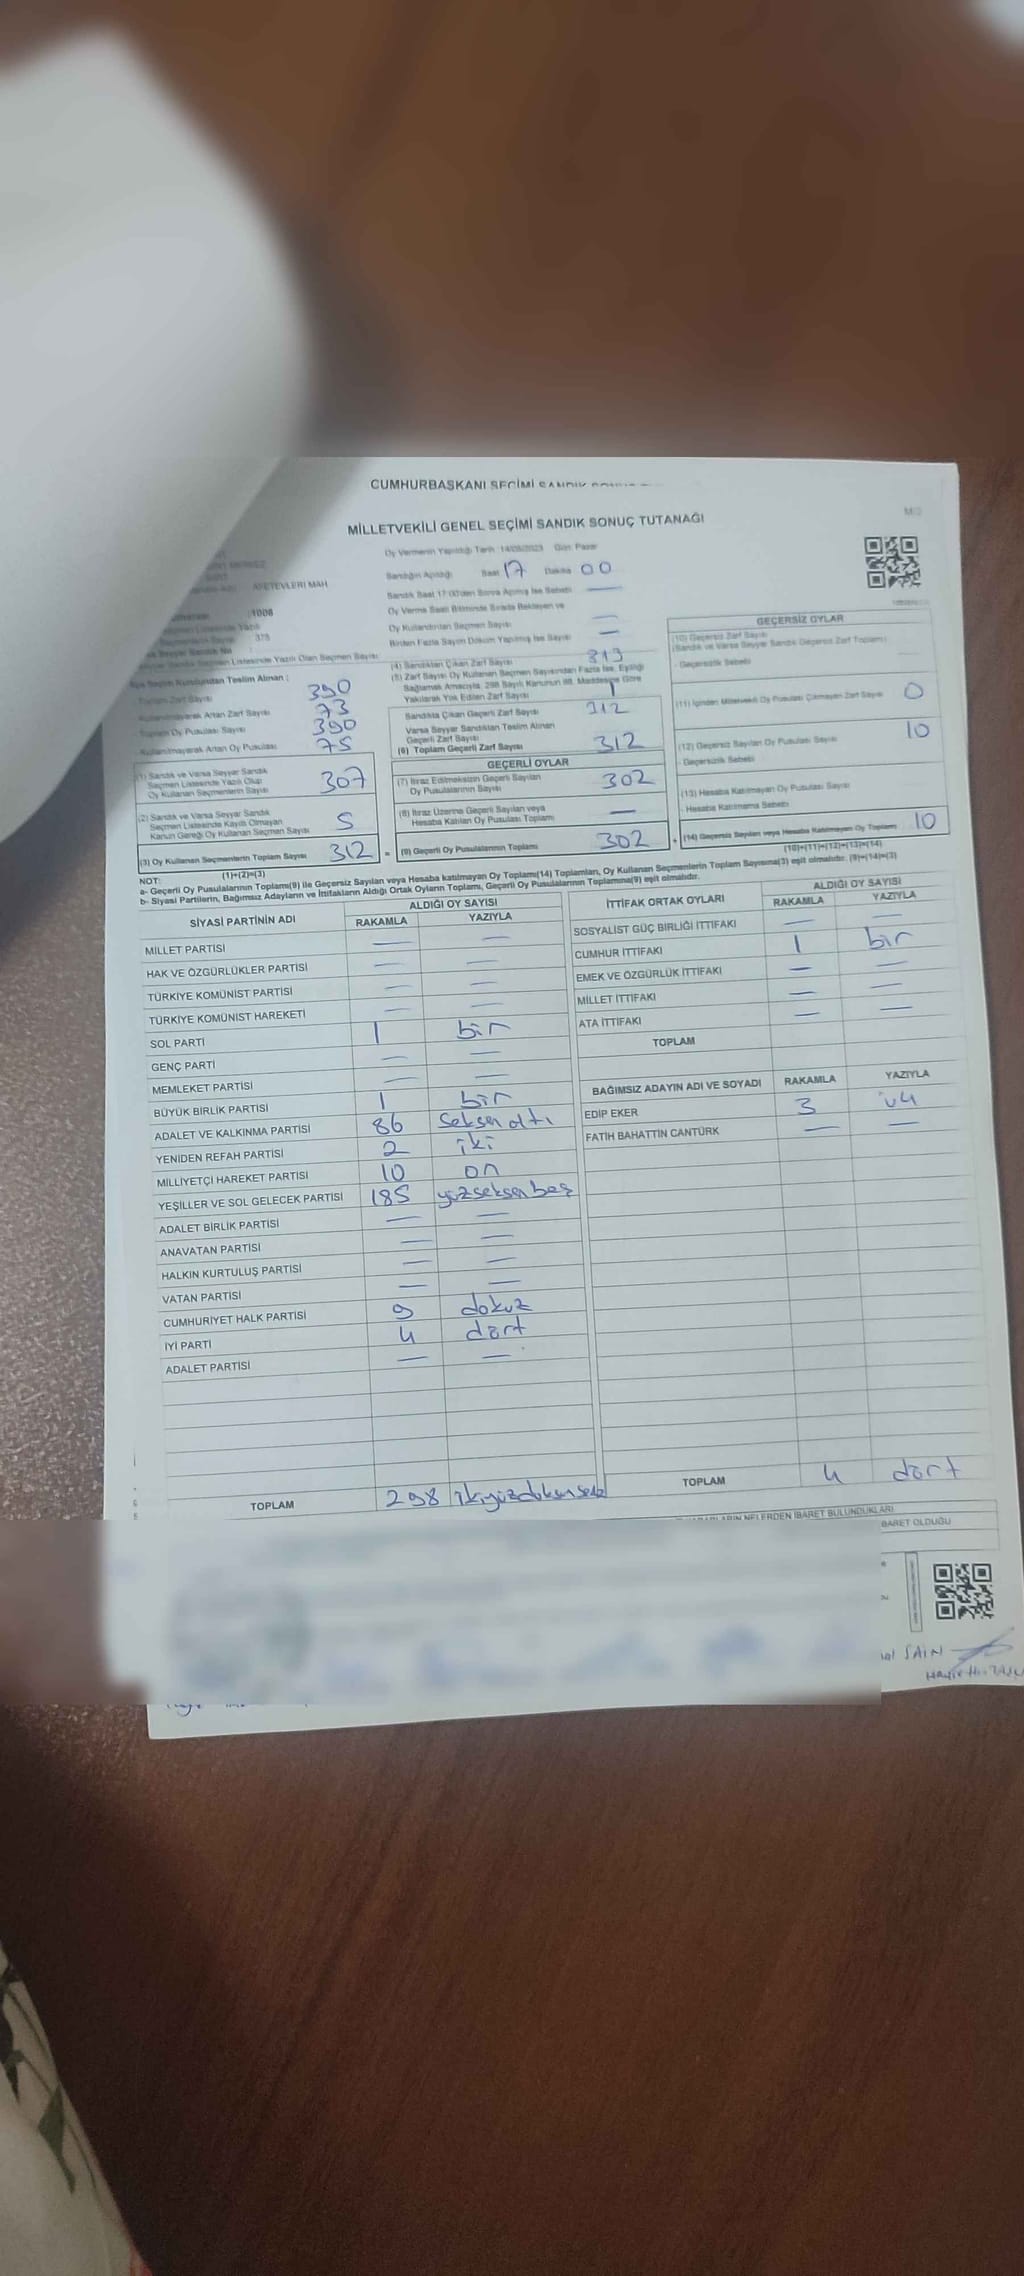 CUMHURBAŞKANI SEÇİMİ SANDIK
MİLLETVEKİLİ GENEL SEÇİMİ SANDIK SONUÇ TUTANAĞI
Oy Vermenin Yapıldığı Tarih :14/05/2023 Gün: Pazar
Sandığın Açıldığı Saat 17 Dakika 00
AFETEVLERİ MAH
Sandık Saat 17:00'den Sonra Açılmış İse Sebebi —
Oy Verme Saati Bitiminde Sırada Bekleyen ve
Oy Kullandırılan Seçmen Sayısı —
Birden Fazla Sayım Döküm Yapılmış İse Sayısı —
:1008
375
Seçmen Listesinde Yazılı Olan Seçmen Sayısı:
İlçe Seçim Kurulundan Teslim Alınan :
Toplam Zarf Sayısı 390
Kullanılmayarak Artan Zarf Sayısı 73
Toplam Oy Pusulası Sayısı 390
Kullanılmayarak Artan Oy Pusulası 75
(1) Sandık ve Varsa Seyyar Sandık
Seçmen Listesinde Yazılı Olup
Oy Kullanan Seçmenlerin Sayısı 307
(2) Sandık ve Varsa Seyyar Sandık
Seçmen Listesinde Kayıtlı Olmayan
Kanun Gereği Oy Kullanan Seçmen Sayısı 5
(3) Oy Kullanan Seçmenlerin Toplam Sayısı 312 =
(1)+(2)=(3)
(4) Sandıktan Çıkan Zarf Sayısı 313
(5) Zarf Sayısı Oy Kullanan Seçmen Sayısından Fazla İse, Eşitliği
Sağlamak Amacıyla, 298 Sayılı Kanunun 98. Maddesine Göre
Yakılarak Yok Edilen Zarf Sayısı 1
Sandıkta Çıkan Geçerli Zarf Sayısı 312
Varsa Seyyar Sandıktan Teslim Alınan
Geçerli Zarf Sayısı
(6) Toplam Geçerli Zarf Sayısı 312
GEÇERLİ OYLAR
(7) İtiraz Edilmeksizin Geçerli Sayılan
Oy Pusulalarının Sayısı 302
(8) İtiraz Üzerine Geçerli Sayılan veya
Hesaba Katılan Oy Pusulası Toplamı —
(9) Geçerli Oy Pusulalarının Toplamı 302 +
GEÇERSİZ OYLAR
(10) Geçersiz Zarf Sayısı
(Sandık ve Varsa Seyyar Sandık Geçersiz Zarf Toplamı)
- Geçersizlik Sebebi
(11) İçinden Milletvekili Oy Pusulası Çıkmayan Zarf Sayısı 0
(12) Geçersiz Sayılan Oy Pusulası Sayısı 10
- Geçersizlik Sebebi
(13) Hesaba Katılmayan Oy Pusulası Sayısı
- Hesaba Katılmama Sebebi
(14) Geçersiz Sayılan veya Hesaba Katılmayan Oy Toplamı 10
(10)+(11)+(12)+(13)=(14)
NOT:
a- Geçerli Oy Pusulalarının Toplamı(9) ile Geçersiz Sayılan veya Hesaba katılmayan Oy Toplamı(14) Toplamları, Oy Kullanan Seçmenlerin Toplam Sayısına(3) eşit olmalıdır. (9)+(14)=(3)
b- Siyasi Partilerin, Bağımsız Adayların ve İttifakların Aldığı Ortak Oyların Toplamı, Geçerli Oy Pusulalarının Toplamına(9) eşit olmalıdır.
SİYASİ PARTİNİN ADI ALDIĞI OY SAYISI
RAKAMLA YAZIYLA
MİLLET PARTİSİ — —
HAK VE ÖZGÜRLÜKLER PARTİSİ — —
TÜRKİYE KOMÜNİST PARTİSİ — —
TÜRKİYE KOMÜNİST HAREKETİ — —
SOL PARTİ 1 bir
GENÇ PARTİ — —
MEMLEKET PARTİSİ — —
BÜYÜK BİRLİK PARTİSİ 1 bir
ADALET VE KALKINMA PARTİSİ 86 Seksen altı
YENİDEN REFAH PARTİSİ 2 iki
MİLLİYETÇİ HAREKET PARTİSİ 10 on
YEŞİLLER VE SOL GELECEK PARTİSİ 185 yüzseksen beş
ADALET BİRLİK PARTİSİ — —
ANAVATAN PARTİSİ — —
HALKIN KURTULUŞ PARTİSİ — —
VATAN PARTİSİ — —
CUMHURİYET HALK PARTİSİ 9 dokuz
İYİ PARTİ 4 dört
ADALET PARTİSİ — —
TOPLAM 298 ikiyüzdoksansekiz
İTTİFAK ORTAK OYLARI ALDIĞI OY SAYISI
RAKAMLA YAZIYLA
SOSYALİST GÜÇ BİRLİĞİ İTTİFAKI — —
CUMHUR İTTİFAKI 1 bir
EMEK VE ÖZGÜRLÜK İTTİFAKI — —
MİLLET İTTİFAKI — —
ATA İTTİFAKI — —
TOPLAM
BAĞIMSIZ ADAYIN ADI VE SOYADI RAKAMLA YAZIYLA
EDİP EKER 3 üç
FATİH BAHATTİN CANTÜRK — —
TOPLAM 4 dört
NELERDEN İBARET BULUNDUKLARI
BARET OLDUĞU
SAİN